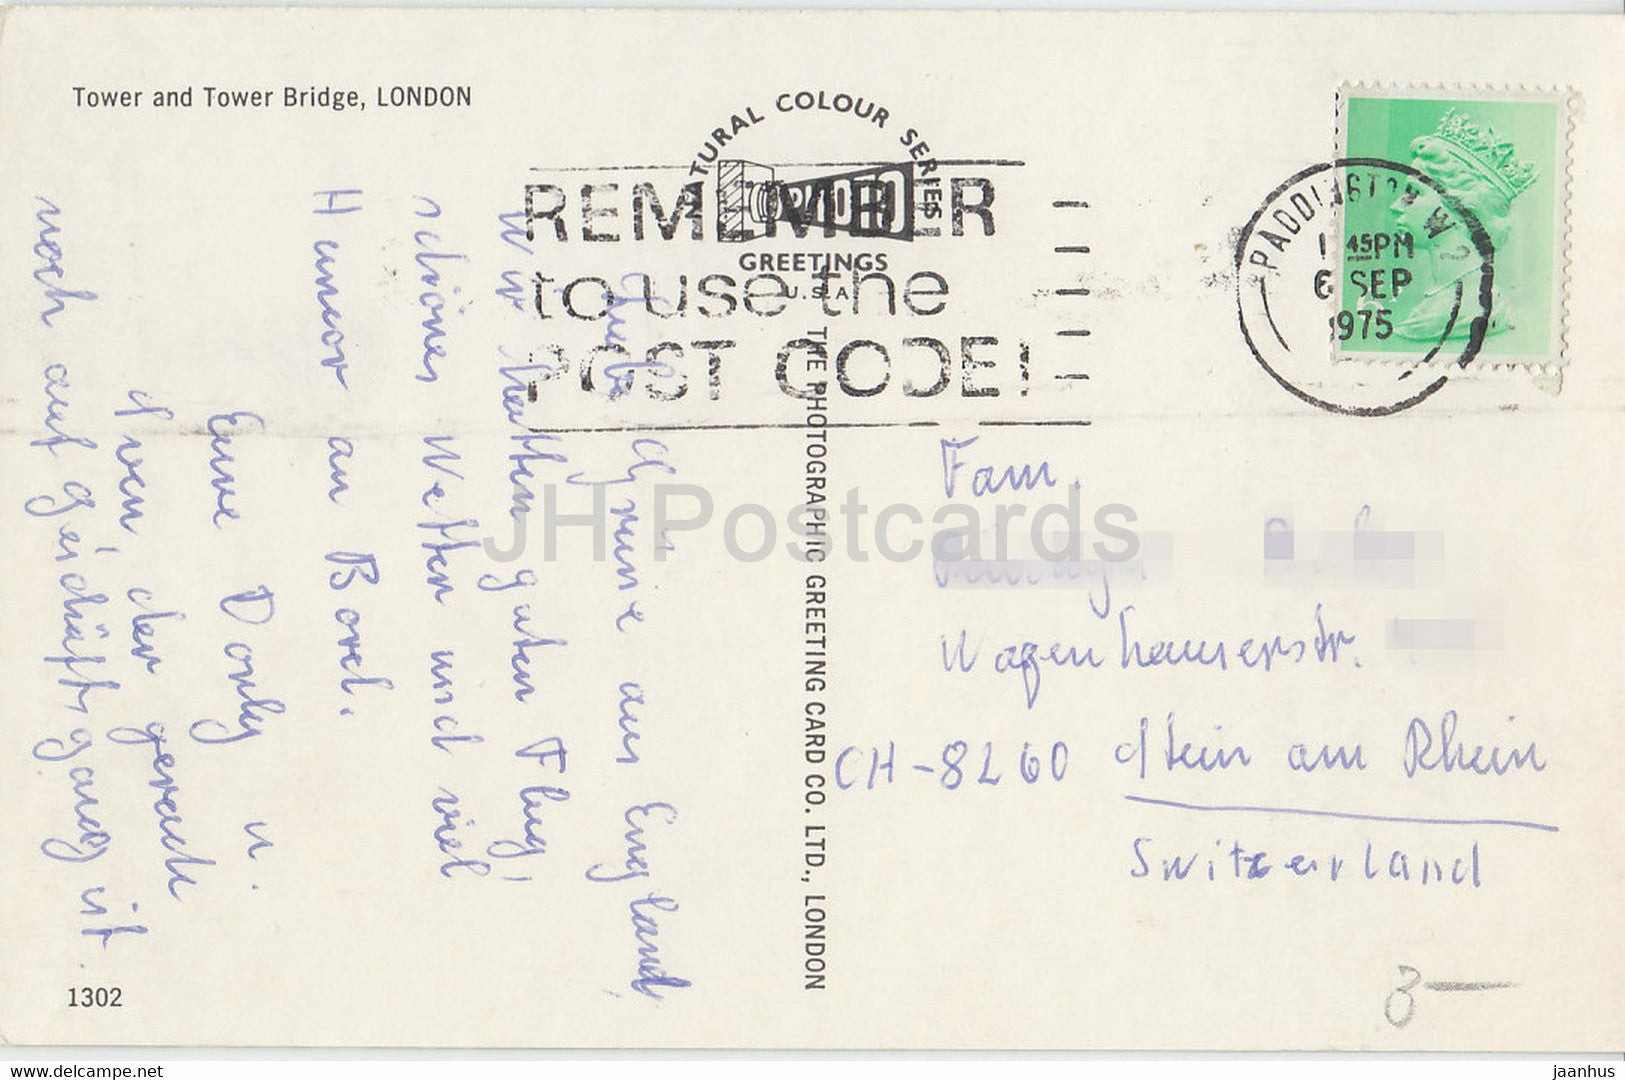 Tower and Tower Bridge, LONDON
NATURAL COLOUR SERIES
PHOTO
GREETINGS
U.S.A
REMEMBER
to use the
POST CODE!
PADDINGTON W2
1 45PM
6 SEP
1975
THE PHOTOGRAPHIC GREETING CARD CO. LTD., LONDON
Liebe Grüsse aus England,
Wir hatten guten Flug,
schönes Wetter und viel
Humor an Bord.
Eure Dorly u.
Sven, der gerade
noch auf geschäftsgang ist.
Fam.
Wagenhauserstr.
CH-8260 Stein am Rhein
Switzerland
1302
8—
JH Postcards
oldthing.net
jaanhus